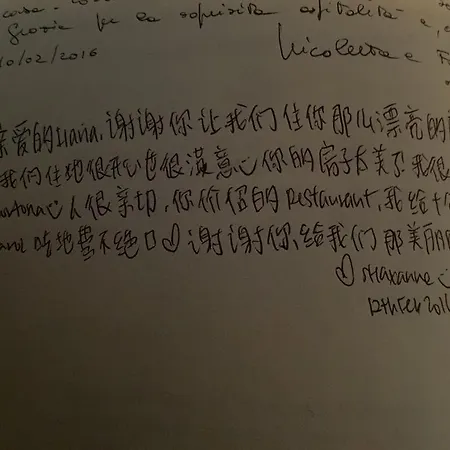 Grazie per la squisita ospitalità e,
10/02/2016
Nicoletta e F
亲爱的Ilaria,谢谢你让我们住你那么漂亮的
我们住地很开心也很满意☺你的房子太美了我很
ortona☺人很亲切,你价绍的Restaurant,我给十
and 咕地赞不绝口♡谢谢你,给我们那美丽的
♡ Maxanne☺
12th Feb 201